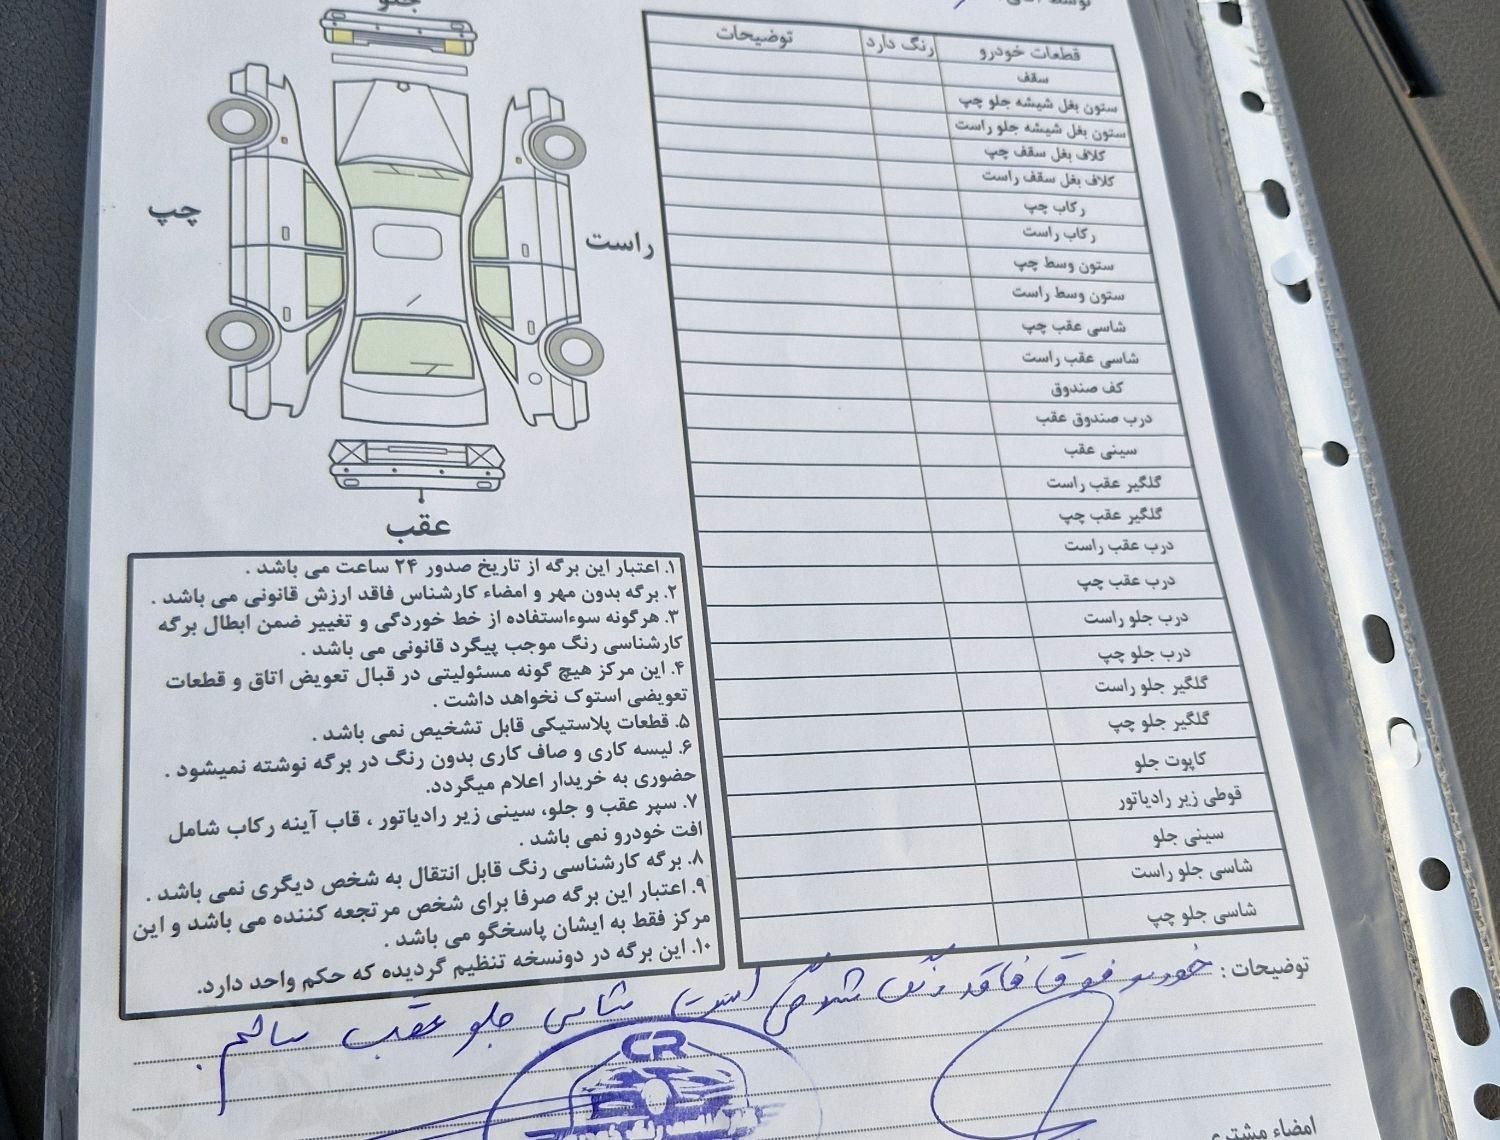 توسط آقای
قطعات خودرو رنگ دارد توضیحات
سقف
ستون بغل شیشه جلو چپ
ستون بغل شیشه جلو راست
کلاف بغل سقف چپ
کلاف بغل سقف راست
رکاب چپ
رکاب راست
ستون وسط چپ
ستون وسط راست
شاسی عقب چپ
شاسی عقب راست
کف صندوق
درب صندوق عقب
سینی عقب
گلگیر عقب راست
گلگیر عقب چپ
درب عقب راست
درب عقب چپ
درب جلو راست
درب جلو چپ
گلگیر جلو راست
گلگیر جلو چپ
کاپوت جلو
قوطی زیر رادیاتور
سینی جلو
شاسی جلو راست
شاسی جلو چپ
جلو
راست
چپ
عقب
۱. اعتبار این برگه از تاریخ صدور ۲۴ ساعت می باشد .
۲. برگه بدون مهر و امضاء کارشناس فاقد ارزش قانونی می باشد .
۳. هرگونه سوءاستفاده از خط خوردگی و تغییر ضمن ابطال برگه
کارشناسی رنگ موجب پیگرد قانونی می باشد .
۴. این مرکز هیچ گونه مسئولیتی در قبال تعویض اتاق و قطعات
تعویضی استوک نخواهد داشت .
۵. قطعات پلاستیکی قابل تشخیص نمی باشد .
۶. لیسه کاری و صاف کاری بدون رنگ در برگه نوشته نمیشود .
حضوری به خریدار اعلام میگردد.
۷. سپر عقب و جلو، سینی زیر رادیاتور ، قاب آینه رکاب شامل
افت خودرو نمی باشد .
۸. برگه کارشناسی رنگ قابل انتقال به شخص دیگری نمی باشد .
۹. اعتبار این برگه صرفا برای شخص مرتجعه کننده می باشد و این
مرکز فقط به ایشان پاسخگو می باشد .
۱۰. این برگه در دونسخه تنظیم گردیده که حکم واحد دارد.
توضیحات : خودرو فوق فاقد رنگ شدگی است شاسی جلو عقب سالم
CR
امضاء مشتری